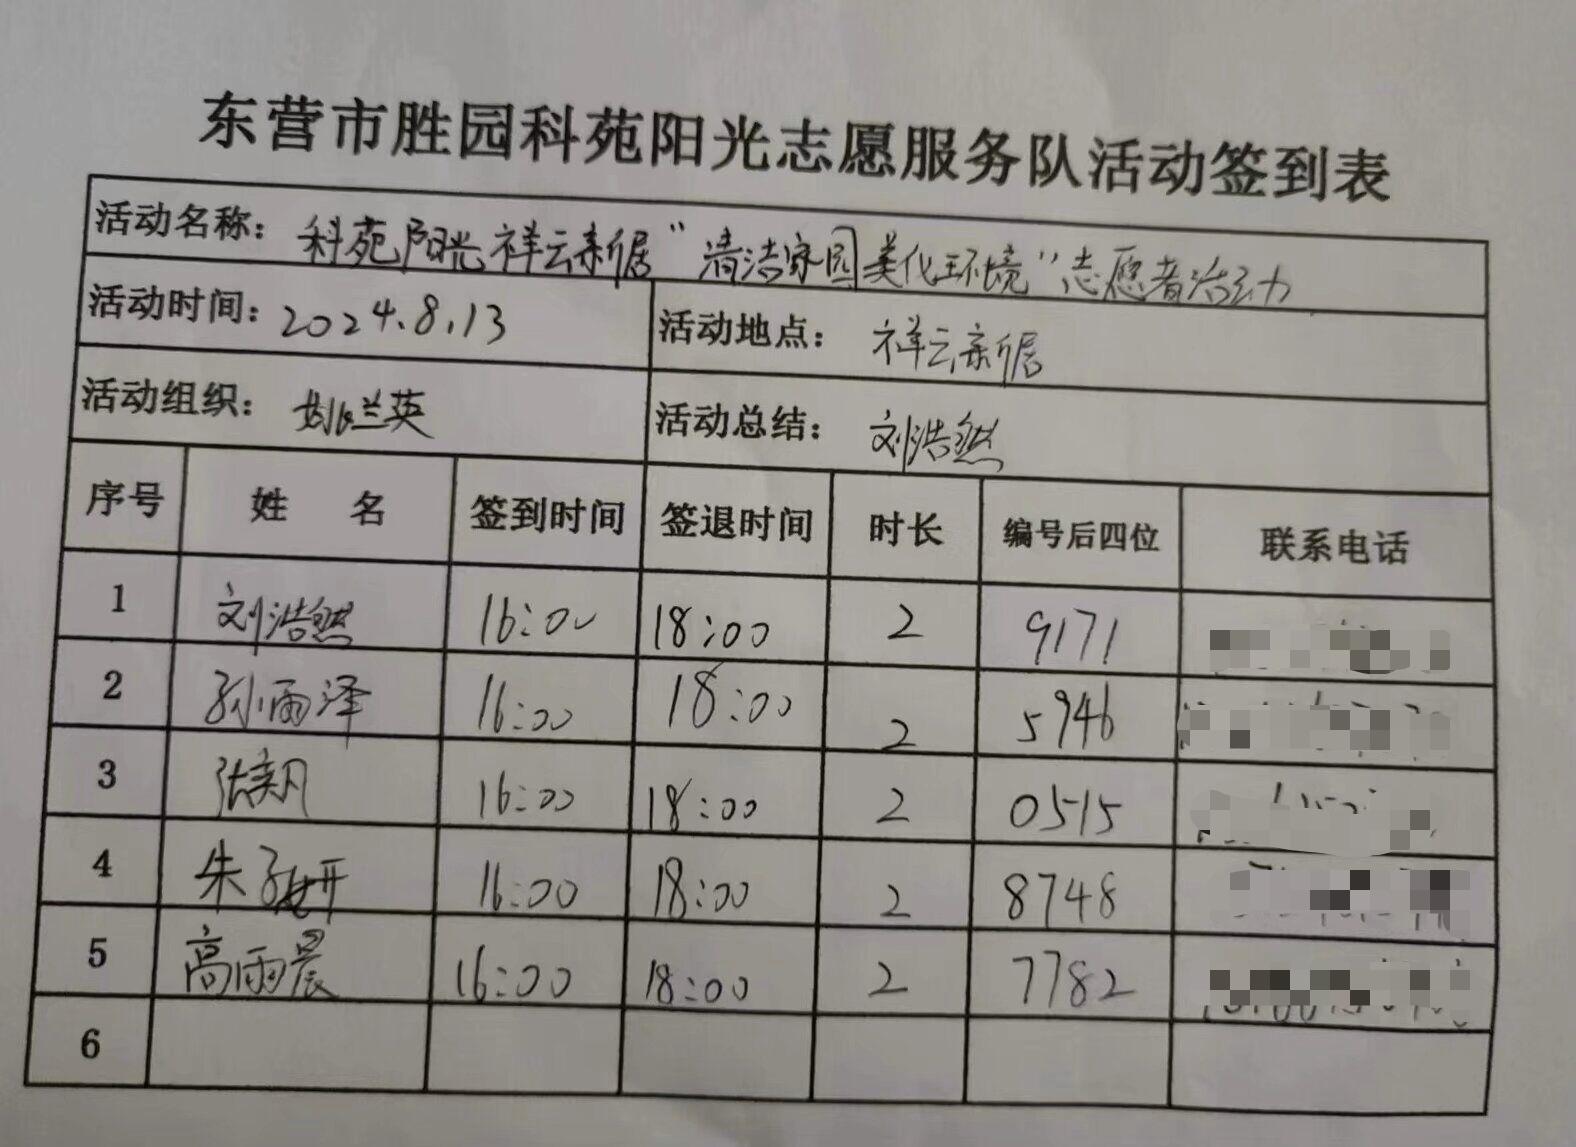 东营市胜园科苑阳光志愿服务队活动签到表
活动名称：科苑阳光祥云新居“清洁家园美化环境”志愿者活动
活动时间：2024.8.13 活动地点：祥云新居
活动组织：姚兰英 活动总结：刘浩然
序号 姓 名 签到时间 签退时间 时长 编号后四位 联系电话
1 刘浩然 16:00 18:00 2 9171
2 孙雨泽 16:00 18:00 2 5946
3 张奕凡 16:00 18:00 2 0515
4 朱子妍 16:00 18:00 2 8748
5 高雨晨 16:00 18:00 2 7782
6